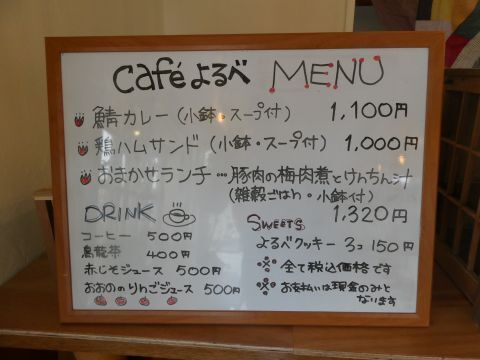 Café よるべ MENU
鯖カレー(小鉢・スープ付) 1,100円
鶏ハムサンド(小鉢・スープ付) 1,000円
おまかせランチ…豚肉の梅肉煮とけんちん汁
(雑穀ごはん・小鉢付)
1,320円
DRINK
コーヒー 500円
烏龍茶 400円
赤じそジュース 500円
おおののりんごジュース 500円
SWEETS
よるべクッキー 3コ 150円
※ 全て税込価格です
※ お支払いは現金のみと
なります